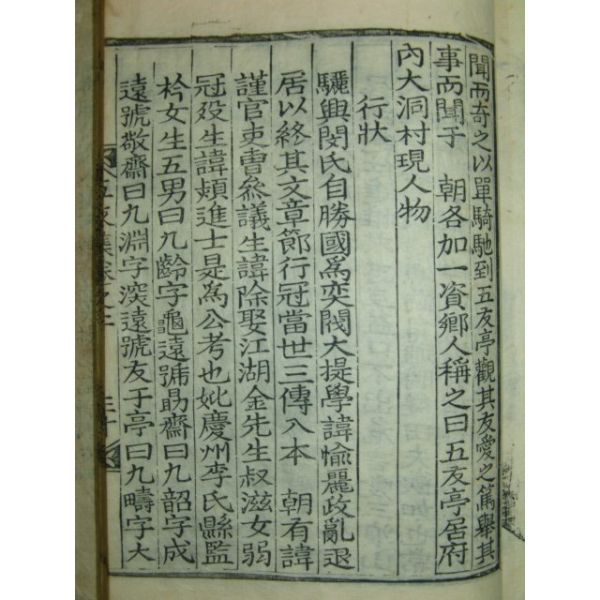 聞而奇之以單騎馳到五友亭觀其友愛之篤擧其
事而聞于　朝各加一資鄕人稱之曰五友亭居府
內大洞村現人物
行狀
驪興閔氏自勝國爲奕閥大提學諱愉麗政亂退
居以終其文章節行冠當世三傳入本　朝有諱
謹官吏曹參議生諱除娶江湖金先生叔滋女弱
冠歿生諱頍進士是爲公考也妣慶州李氏縣監
衿女生五男曰九齡字龜遠號助齋曰九韶字成
遠號敬齋曰九淵字深遠號友于亭曰九疇字大
五友集卷之二